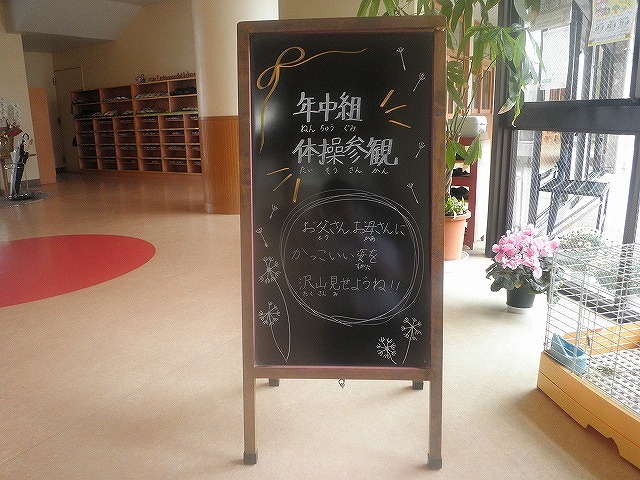 年中組
ねんちゅうぐみ
体操参観
たいそうさんかん
お父さん、お母さんに
とう かあ
かっこいい姿を
すがた
沢山見せようね!!
たくさん み